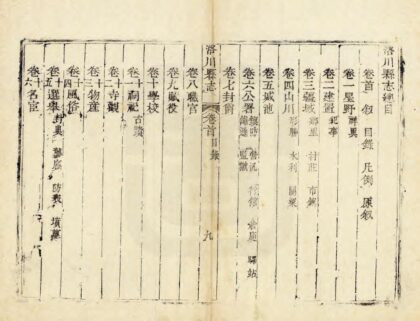 洛川縣志總目
卷首 敘 目錄 凡例 原敘
卷一星野 祥異
卷二建置
卷三疆域 鄉里 村莊 市鎮
卷四山川 形勝 水利 關梁
卷五城池
卷六公署 倉廒 驛站
卷七封爵
洛川縣志 卷首目錄 九
卷八職官
卷九賦役
卷十學校
卷十一祠祀 古蹟
卷十二寺觀
卷十三物產
卷十四風俗
卷十五選舉 封典 防裁 墳墓
卷十六名宦